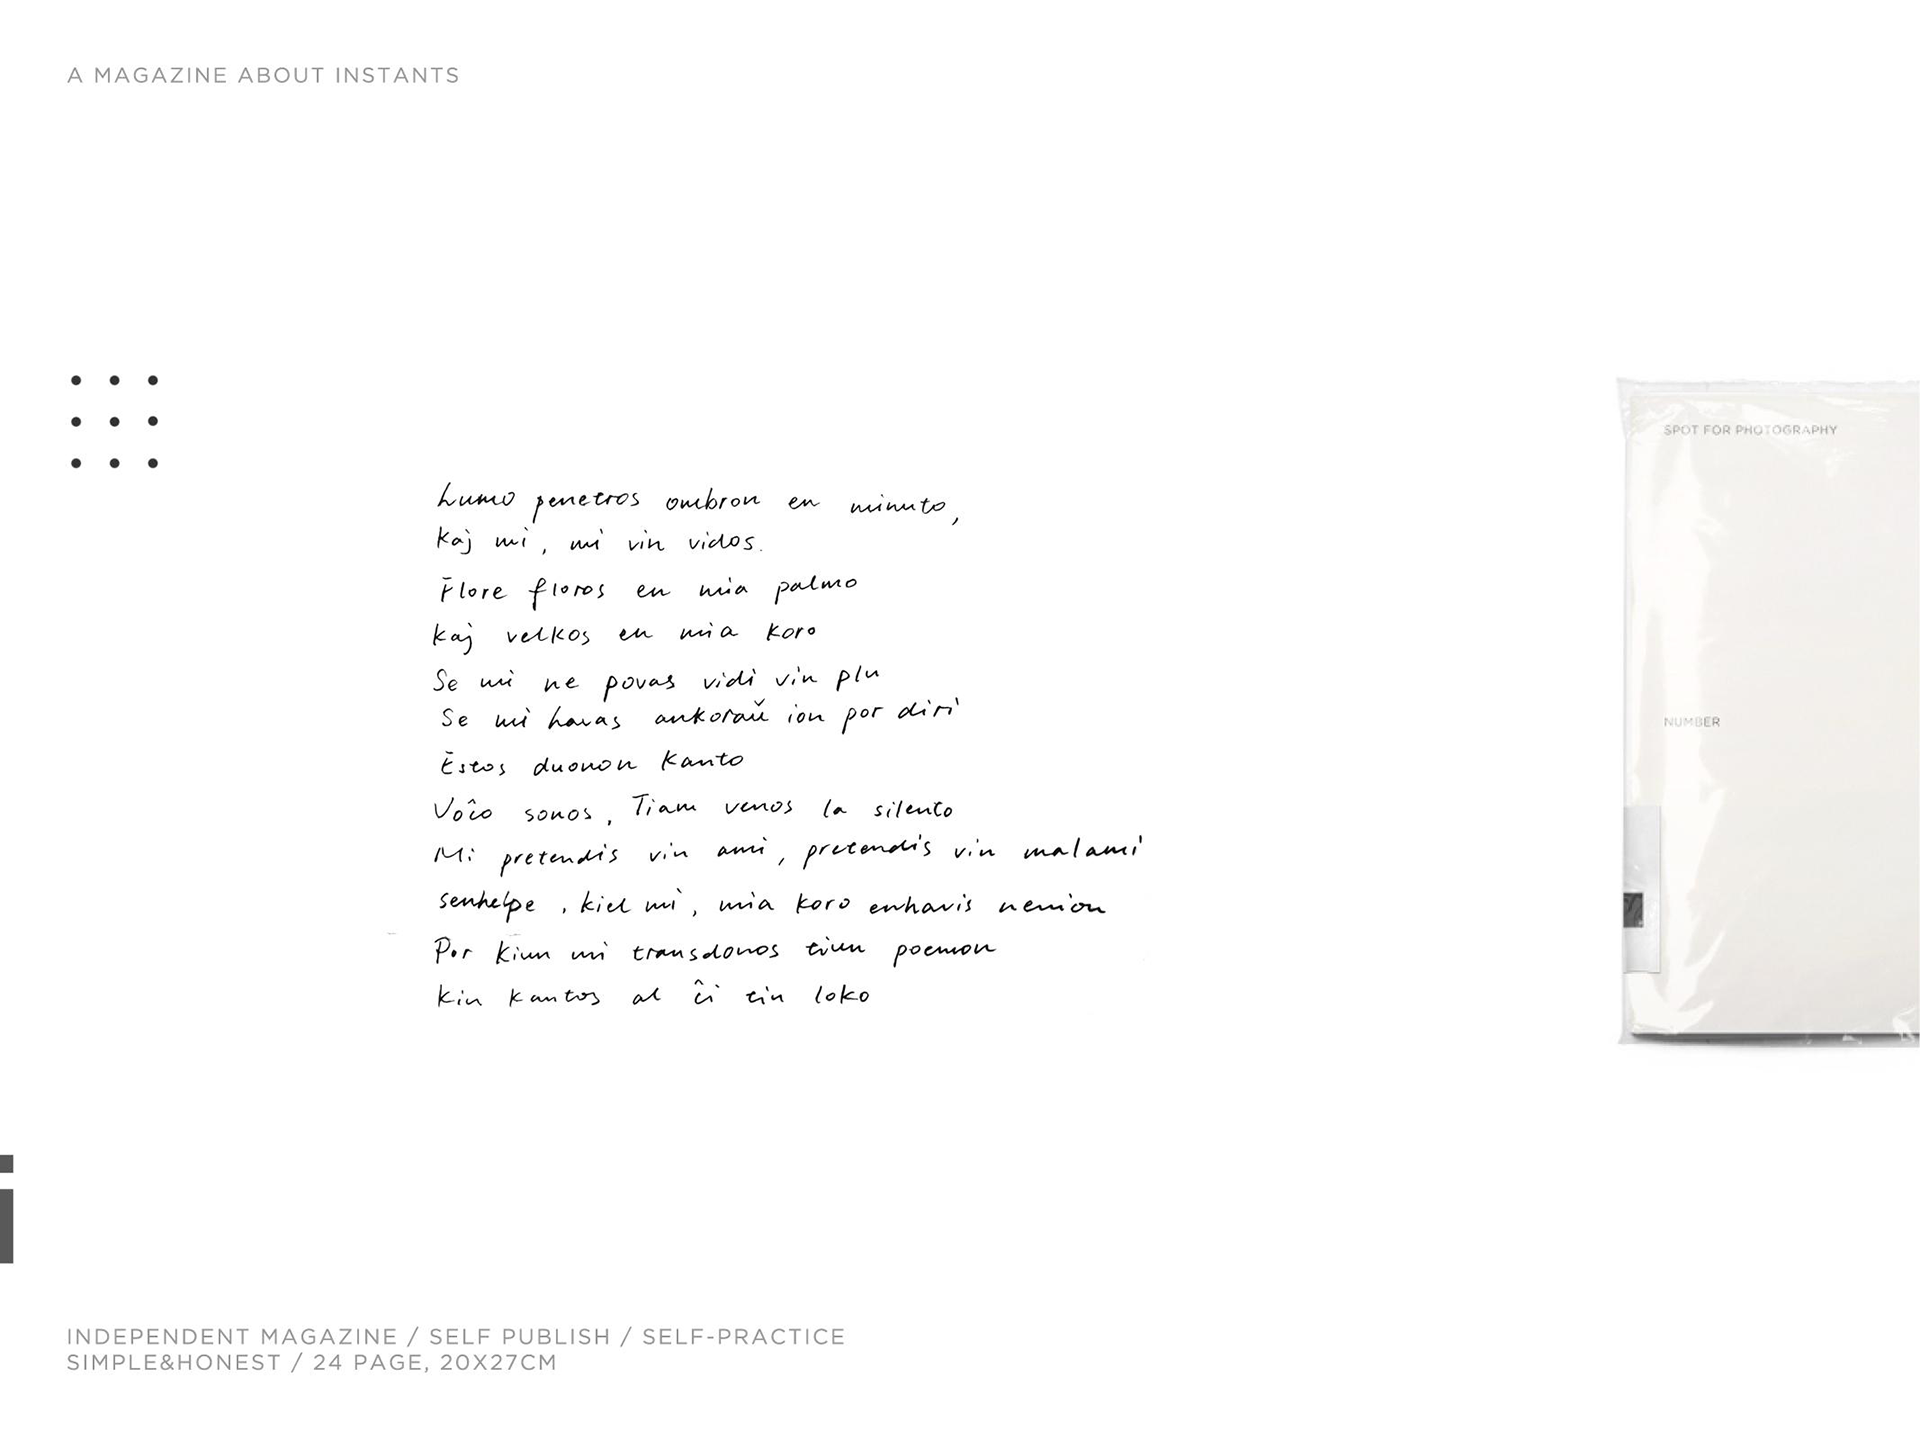 A MAGAZINE ABOUT INSTANTS
SPOT FOR PHOTOGRAPHY
Lumo penetros ombron en minuto,
Kaj mi, mi vin vidos.
Flore floros en mia palmo
Kaj velkos en mia koro
Se mi ne povas vidi vin plu
NUMBER
Se mi havas ankoraŭ ion por diri
Estos duonon Kanto
Voĉo sonos, Tiam venos la silento
Mi pretendis vin ami, pretendis vin malami
senhelpe, kiel mi, mia koro enhavis nenion
Por Kiun mi transdonos tiun poemon
Kin Kantos al ĉi tin loko
i
INDEPENDENT MAGAZINE / SELF PUBLISH / SELF-PRACTICE
SIMPLE&HONEST / 24 PAGE, 20X27CM